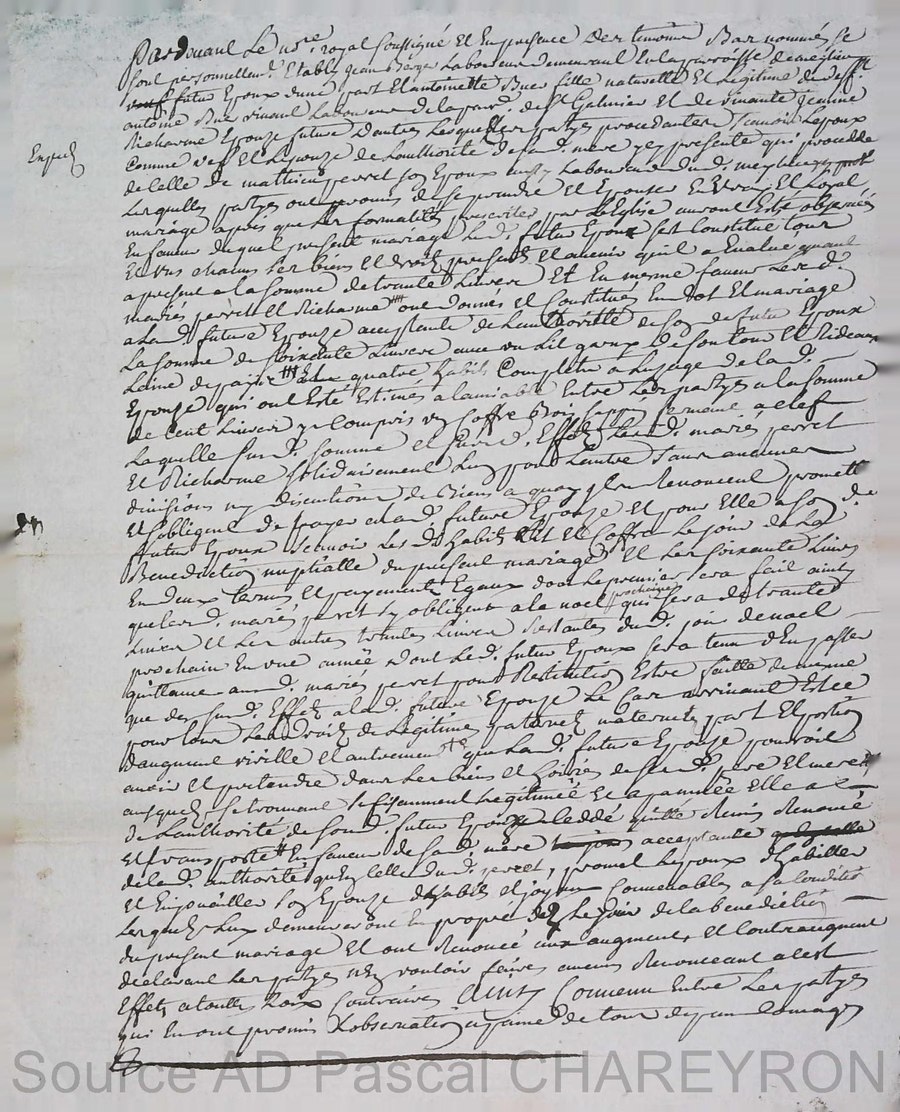 Pardevant Le no.re royal soussigné Et En presence Des temoins Bas nommés se
sont personnellem.t Etablis jean Laboureur demeurant En la parroisse de
futur Epoux d'une part Et antoinette Buer fille naturelle Et Legitime de deff.t
antoine Buer vivant Laboureur de la parr. de S.t Galmier et de vivante jeanne
Richarme Epouze future d'autre Lesquelles partyes procedantes scavoir Lepoux
Comme Et Lepouze de Lauthorité de sad. mere ycy presente qui procedde
Enpied
de Celle de mathieu perret son Epoux Laboureur dud.
Lesquelles partyes ont promis de se prendre Et Epouser En vray Et Loyal
mariage apres que Les formalités prescrites par L'Eglise auront Esté observées
En faveur duquel present mariage Led. futur Epoux sest Constitué tous
Et uns chacuns ses biens Et droits presents Et avenir qu'il a Evalué quant
a present a la somme de trante Livres Et En meme faveur Lesd.
mariés perret et Richarme ont donnés et Constitués En dot Et mariage
a Lad. future Epouze acceptante de Lauthorité de son d. futur Epoux
La somme de soixante Livres avec un Lit garny de son tour Et Rideaux
Laine de païs quatre habits Complets a Lusage de lad.
Epouze qui ont Esté Estimés a Lamiable Entre Les partyes a la somme
de Cent Livres y Compris un Coffre bois sappin fermant a clef
Laquelle susd. somme et susd. Effets Lesd. mariés perret
Et Richarme solidairement L'un pour L'autre sans aucune
division ny discution de Biens a quoy ils Renoncent promett.t
Et sobligent de payer a Lad. future Epouze Et pour Elle a son d.
futur Epoux scavoir Les d. habits Lit et Coffre Le jour de La
Benediction nuptialle du present mariage Et Les soixante Livres
En deux termes Et payements Egaux dont Le premier sera fait ainsy
que lesd. mariés perret s'y obligent a la noel prochaine qui sera de trante
Livres Et Les autres trante Livres Restantes dud. jour de noel
prochain En une année dont Led. futur Epoux sera tenu d'En passer
quittance ausd. mariés perret pour Restitution Estre faitte de meme
que des susd. Effets a lad. future Epouze Le Cas arrivant Et ce
pour tous Les droits de Legitime paternels maternels part Et portion
daugment virille Et autrement que Lad. future Epouze pourroit
avoir Et pretendre dans Les biens et hoiries de sesd. pere Et mere
ausquels se trouvant suffisamment Legitimée Et apannée Elle a
de Lauthorité de sond. futur Epoux ceddé quitté Remis Renoncé
Et transporté En faveur de sad. mere acceptante
de lad. authorité que celle dud. perret, promet Lepoux d'habiller
Et Enjouailler son Epouze d'habits Et joyaux Convenables a sa Condition
Lesquels Luy demeureront En propre dez Le jour de la benediction
du present mariage Et ont Renoncé aux augment, et Contraugment
declarant Les partyes n'En vouloir faire aucuns Renonceant a cest
Effet, a toutte Loix Contraires ainsy Convenu Entre Les partyes
qui En ont promis L'observation a paine de tous depans domages
Source AD Pascal CHAREYRON